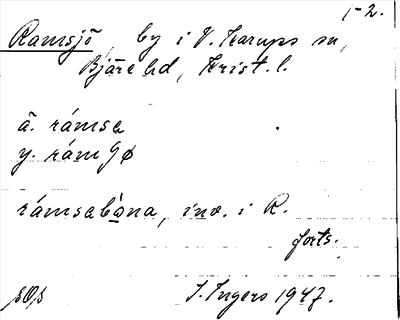 1-2.
Ramsjö, by i V. Karups sn,
Bjäre hd, Krist. l.
ä. rámsa
y. rám gø
rámsabòna, inv. i R.
forts.
I. Ingers 1947.